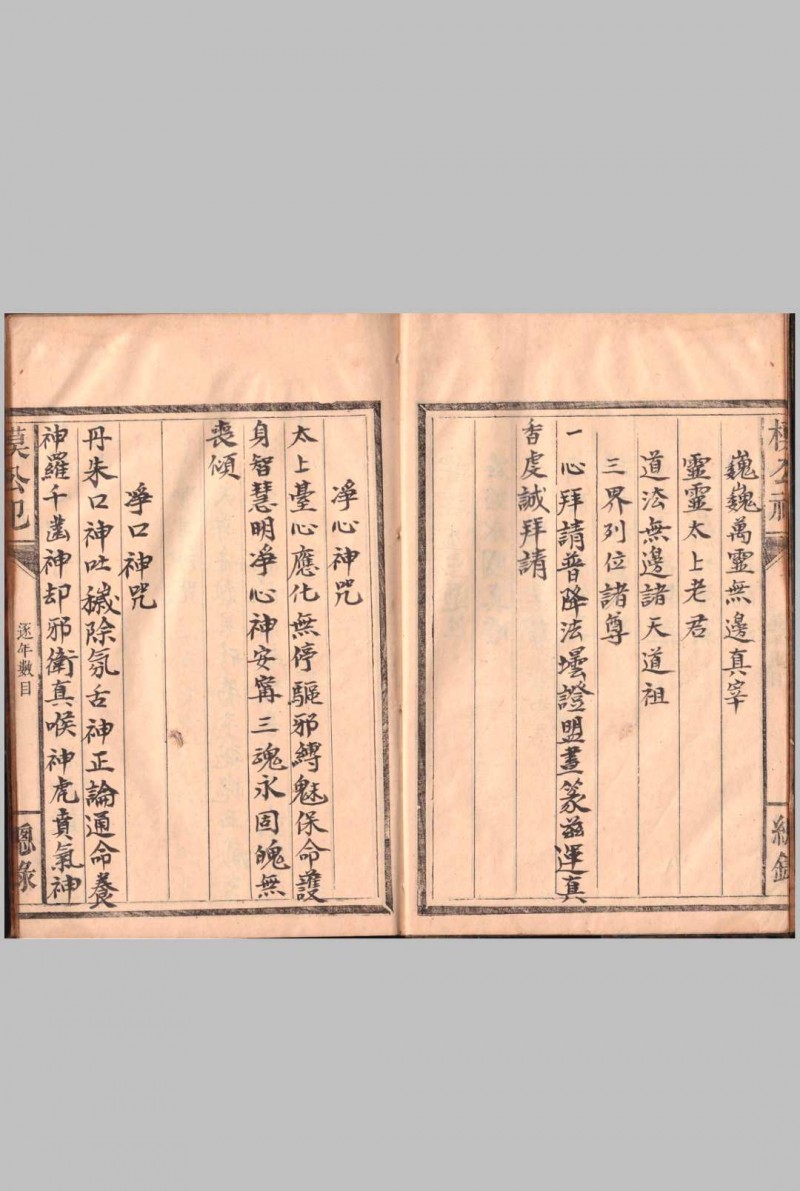 巍巍萬靈無邊真宰
靈靈太上老君
道法無邊諸天道祖
三界列位諸尊
一心拜請普降法壇證盟晝篆茲運真
香虔誠拜請
淨心神咒
太上臺心應化無停驅邪縛魅保命護
身智慧明凈心神安寗三魂永固魄無
喪傾
凈口神咒
丹朱口神吐穢除氛舌神正論通命養
神羅千齒神却邪衛真喉神虎賁氣神
逐年數目
總錄